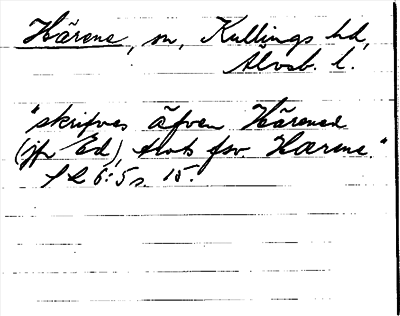 Härene, sn, Kullings hd,
Älvsb. l.
"skrifves äfven Härened
(jfr Ed), trots fsv. Hærene."
SL 6:5 s. 15.